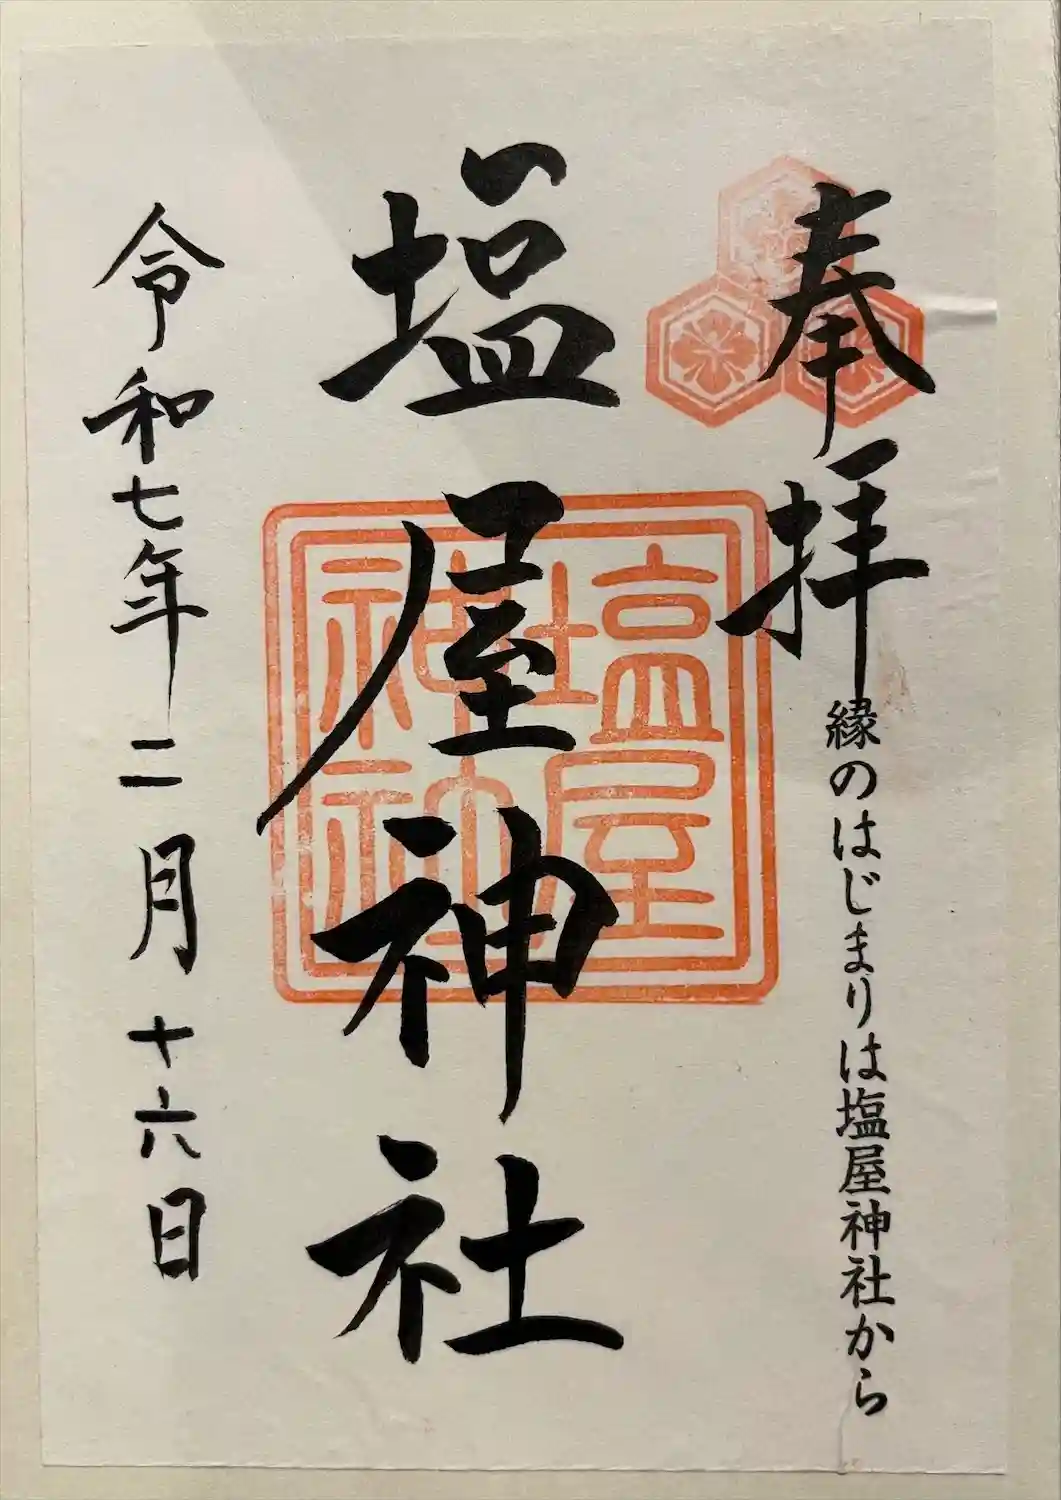 奉拝
縁のはじまりは塩屋神社から
塩屋神社
塩屋
神社
令和七年二月十六日